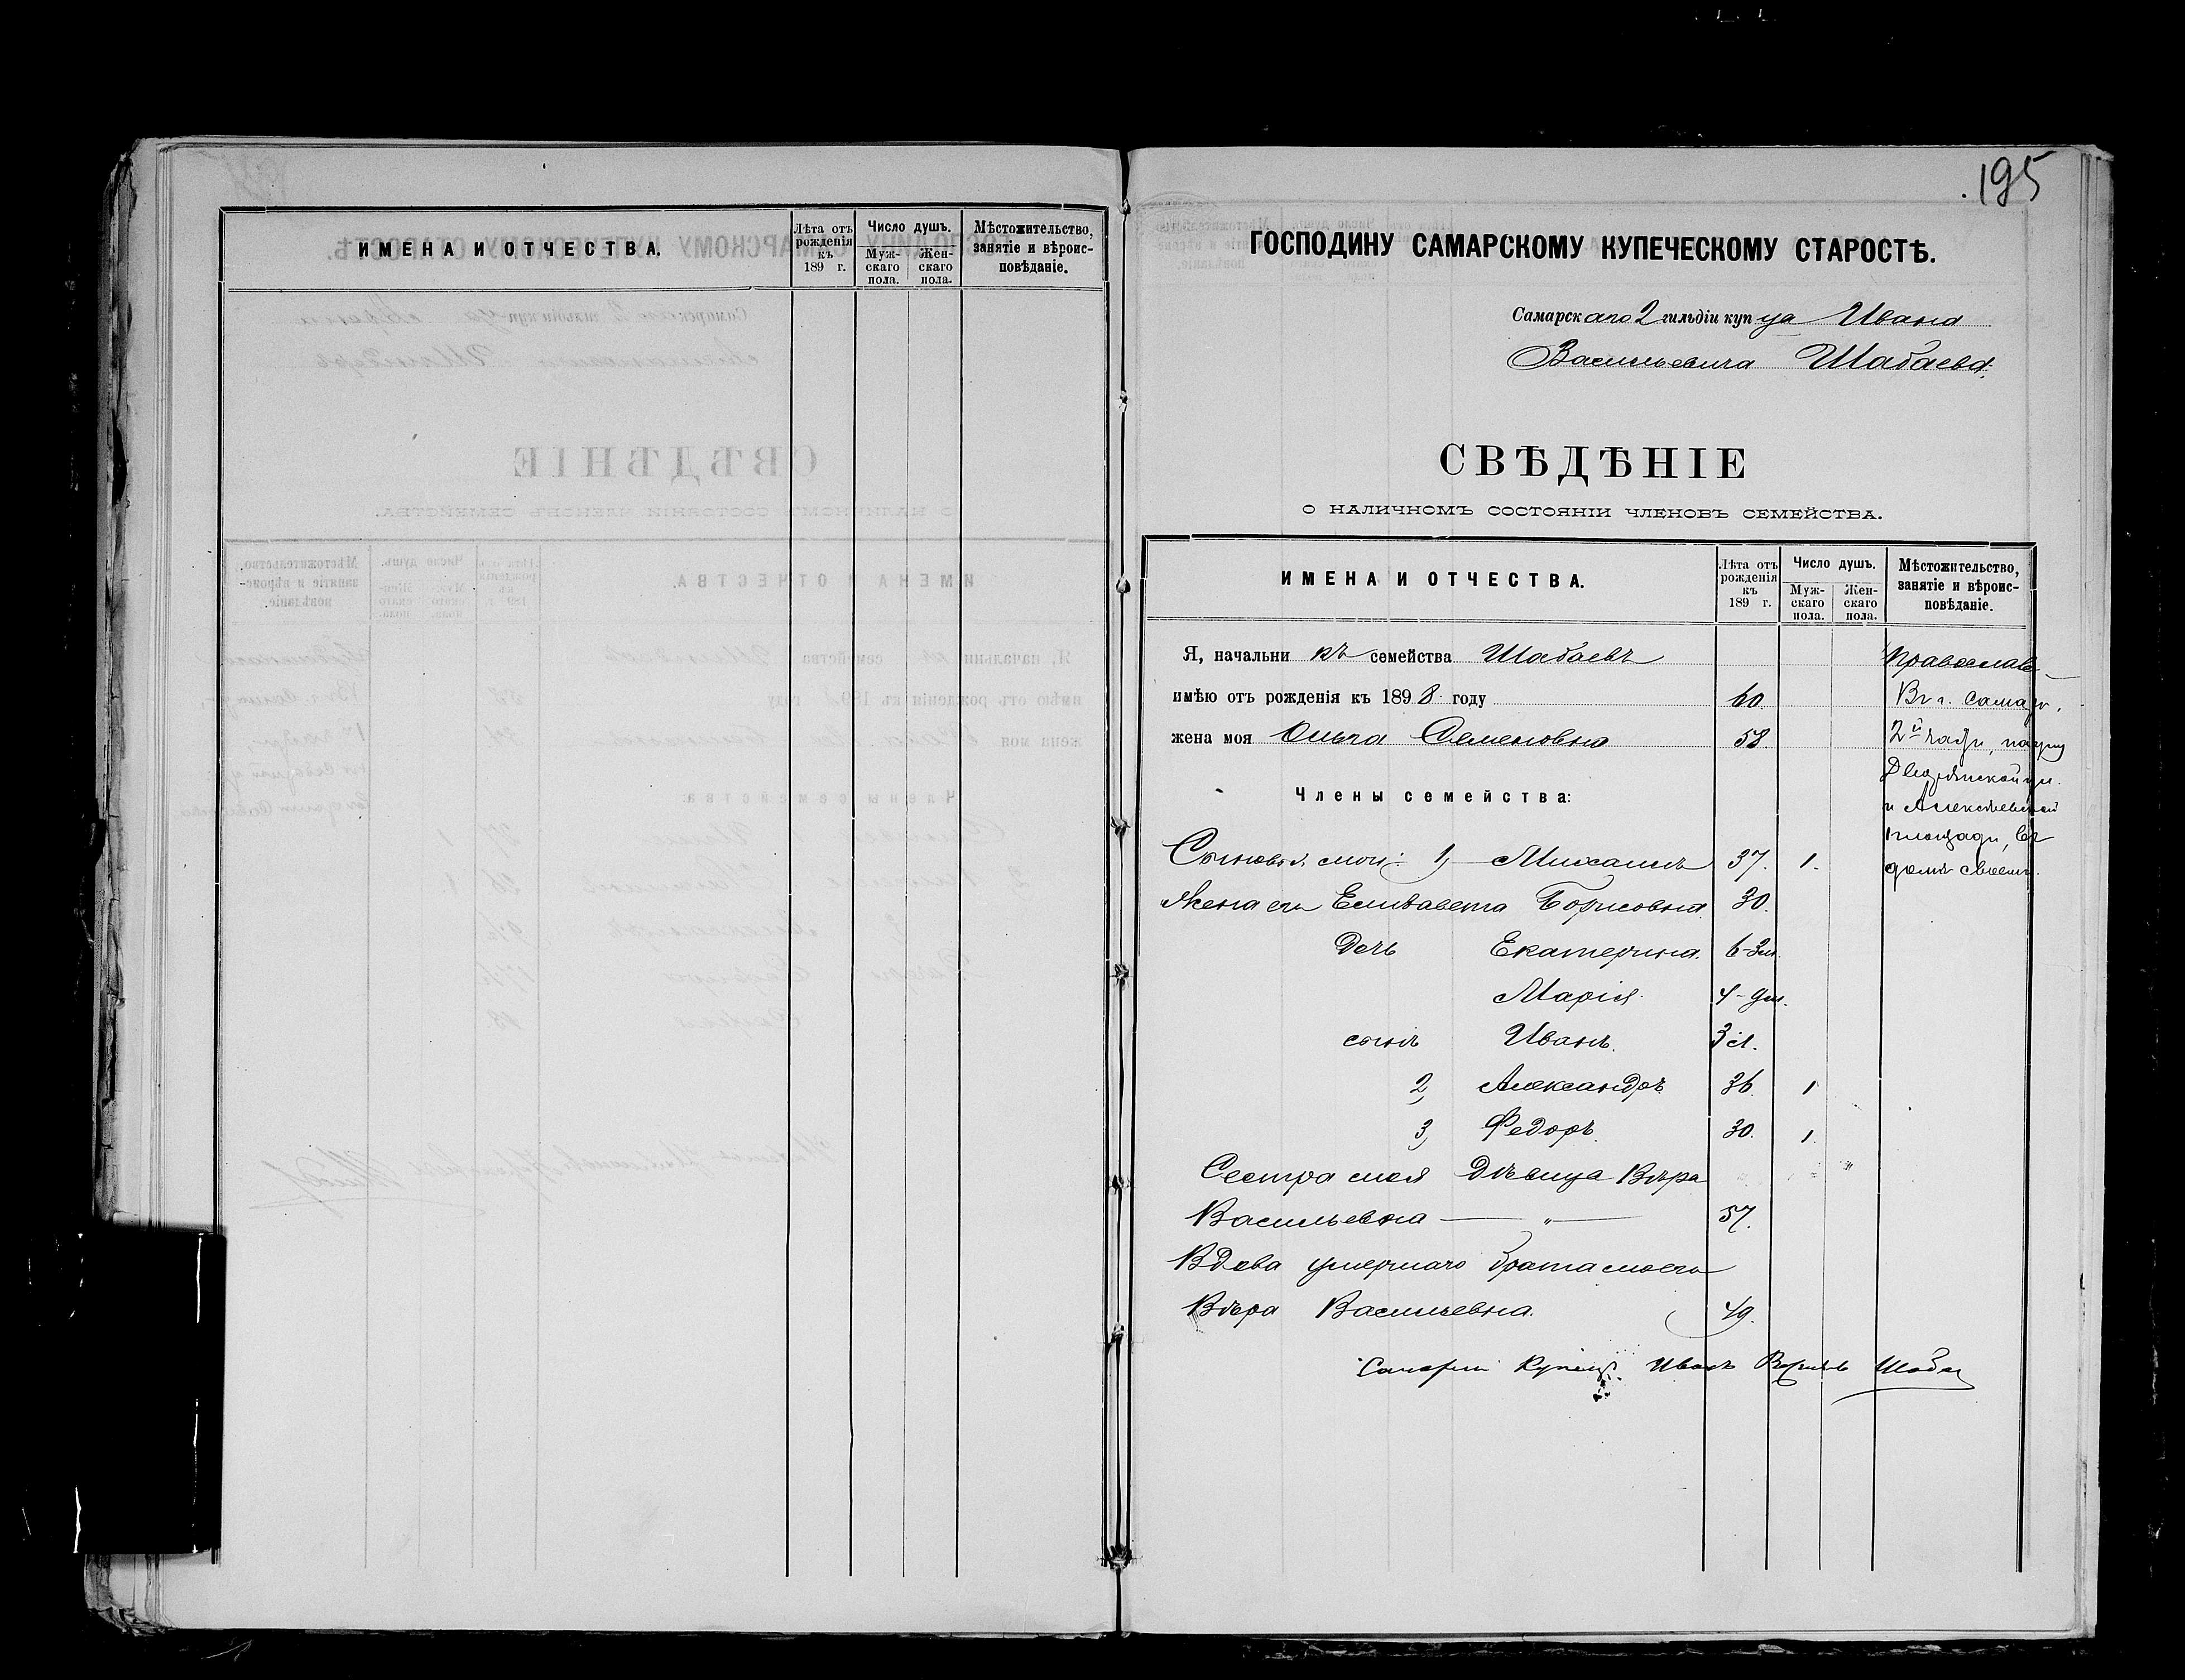 ИМЕНА И ОТЧЕСТВА.
Лѣта отъ рожденія къ 189 г.
Число душъ.
Муж-скаго пола.
Жен-скаго пола.
Мѣстожительство, занятіе и вѣроис-повѣданіе.
195
ГОСПОДИНУ САМАРСКОМУ КУПЕЧЕСКОМУ СТАРОСТѢ.
Самарскаго 2 гильдіи купца Ивана
Васильевича Шабаева.
СВѢДѢНІЕ
О НАЛИЧНОМЪ СОСТОЯНІИ ЧЛЕНОВЪ СЕМЕЙСТВА.
ИМЕНА И ОТЧЕСТВА.
Лѣта отъ рожденія къ 189 г.
Число душъ.
Муж-скаго пола.
Жен-скаго пола.
Мѣстожительство, занятіе и вѣроис-повѣданіе.
Я, начальникъ семейства Шабаевъ
имѣю отъ рожденія къ 1898 году 60.
жена моя Ольга Семеновна 58.
Православ
Въ г. Самарѣ,
2й части, на углу
Дворянской ул.
и Алексѣевской
площади, въ
домѣ своемъ.
Члены семейства:
Сыновья мои: 1, Михаилъ 37. 1.
Жена его Елизавета Борисовна 30.
Дочь Екатерина. 6-3м.
Марія. 4-9м.
сынъ Иванъ. 3 л.
2, Александръ 36. 1
3, Федоръ. 30. 1.
Сестра моя Дѣвица Вѣра
Васильевна — „ — 57.
Вдова умершаго брата моего
Вѣра Васильевна. 49.
Купецъ Иванъ